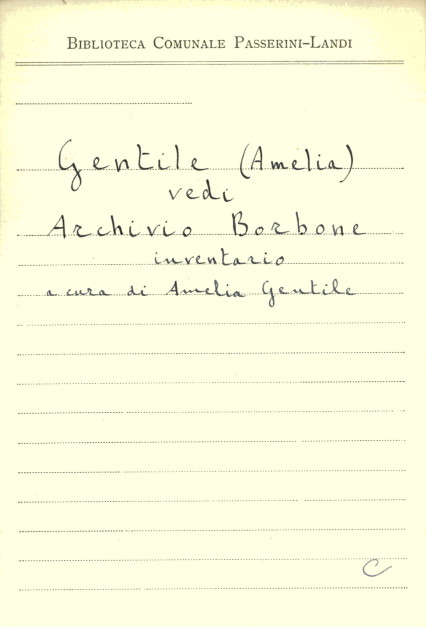 Biblioteca Comunale Passerini-Landi
Gentile (Amelia)
vedi
Archivio Borbone
inventario
a cura di Amelia Gentile
C